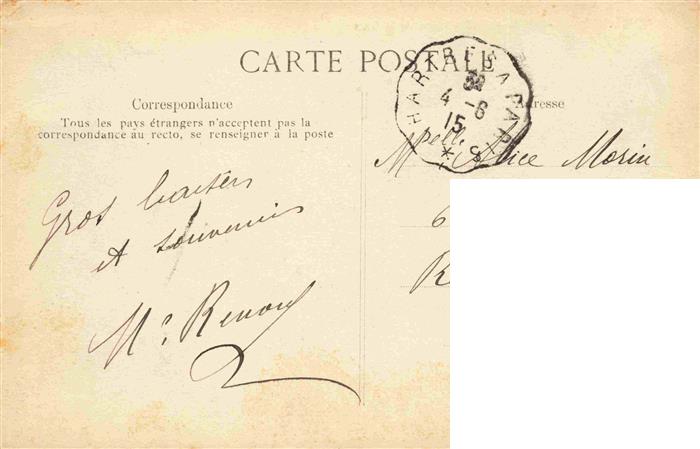 CARTE POSTALE
CHARTRES A PARIS
4 -6
15
Correspondance
Tous les pays étrangers n'acceptent pas la
correspondance au recto, se renseigner à la poste
Adresse
Mpelle Alice Morin
6
R
Gros baisers
et souvenirs
Mce Renou